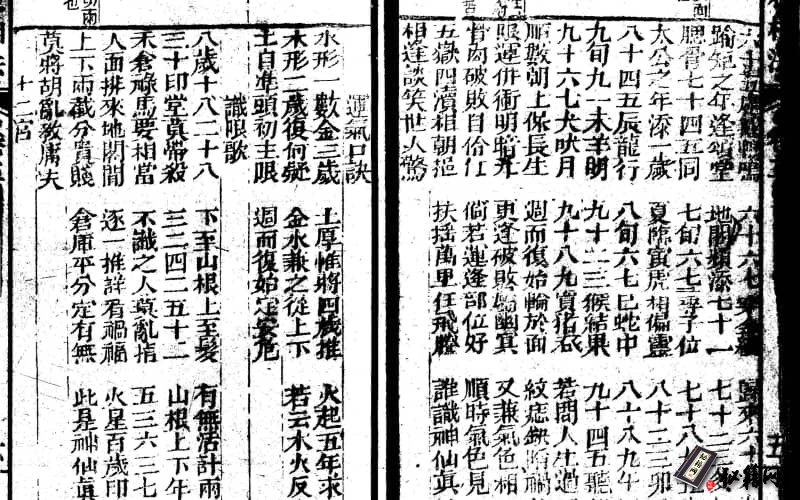 六十六七
踰矩之年逢頌堂 地閣頻添七十一 七十二
腮骨七十四五同 七旬六七 子位 七十八
太公之年添一歲 夏臨寅虎相偏靈 八十二三卯
八十四五辰龍行 八旬六七巳蛇中 八十八九午
九旬九一未羊明 九十二三猴結果 九十四五聽
九十六七犬吠月 九十八九買猪吞 若問人生過
順數朝上保長生 週而復始輪於面 紋痣缺陷禍
限運併衝明暗九 更逢破敗屬幽冥 又兼氣色相
骨肉破敗自伶仃 倘若運逢部位好 順時氣色見
五嶽四瀆相朝挹 扶搖萬里任飛騰 誰識神仙真
相逢談笑世人驚
運氣口訣
水形一數金三歲 土厚惟將四歲推 火起五年求
木形二歲復何疑 金水兼之從上下 若云水火反
土自準頭初主限 週而復始定安危
識限歌
八歲十八二十八 下至山根上至髮 有無活計兩
三十印堂莫帶殺 三二四二五十二 山根上下午
禾倉祿馬要相當 不識之人莫亂指 五三六三七
人面排來地閣間 逐一推詳看禍福 火星百歲印
上下兩截分貴賤 倉庫平分定有無 此是神仙真
莫將胡亂教庸夫
十二宮